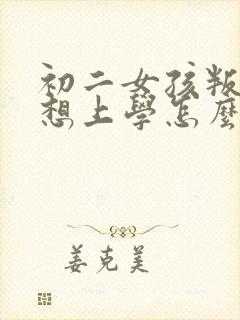 初二女孩叛
想上學怎麼
姜克美